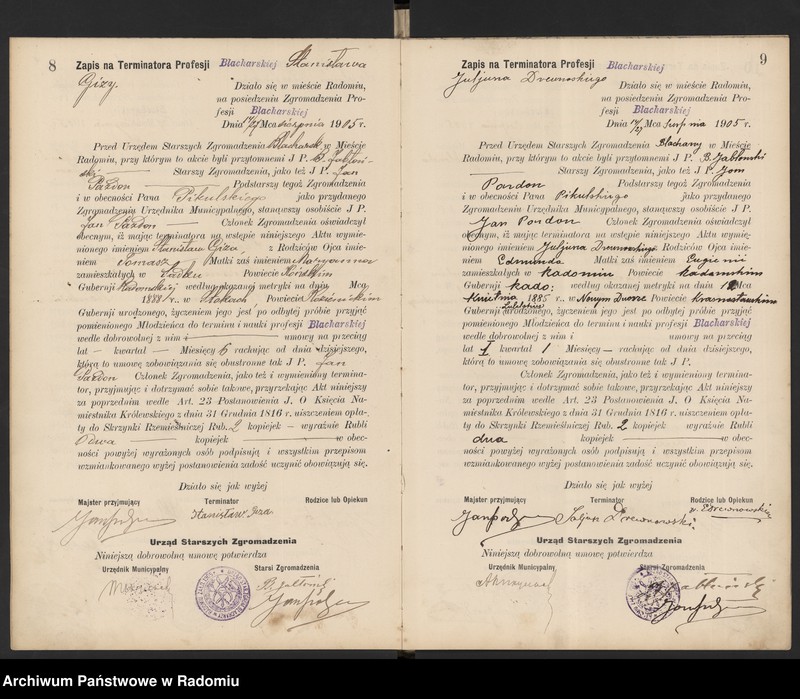 8 Zapis na Terminatora Profesji Blacharskiej Stanisława
Gizy.
Działo się w mieście Radomiu,
na posiedzeniu Zgromadzenia Pro-
fesji Blacharskiej
Dnia Mca sierpnia 1905 r.
Przed Urzędem Starszych Zgromadzenia Blacharsk. w Mieście
Radomiu, przy którym to akcie byli przytomnemi J P. B. Jabłoń-
ski Starszy Zgromadzenia, jako też J P. Jan
Pazdon Podstarszy tegoż Zgromadzenia
i w obecności Pana Pikulskiego jako przydanego
Zgromadzeniu Urzędnika Municypalnego, stanąwszy osobiście J P.
Jan Pazdon Członek Zgromadzenia oświadczył
obecnym, iż mając terminatora na wstępie niniejszego Aktu wymie-
nionego imieniem Stanisława Giza, z Rodziców Ojca imie-
niem Tomasz Matki zaś imieniem Maryanna
zamieszkałych w Powiecie
Gubernji Radomskiej według okazanej metryki na dniu Mca,
1888 r. w Powiecie
Gubernji urodzonego, życzeniem jego jest po odbytej próbie przyjąć
pomienionego Młodzieńca do terminu i nauki profesji Blacharskiej
wedle dobrowolnej z nim i umowy na przeciąg
lat — kwartał — Miesięcy 6 rachując od dnia dzisiejszego,
którą to umowę zobowiązania się obustronne tak J P. Jan
Pazdon Członek Zgromadzenia, jako też i wymieniony termina-
tor, przyjmując i dotrzymać sobie takowe, przyrzekając Akt niniejszy
za poprzednim wedle Art. 23 Postanowienia J. O Księcia Na-
miestnika Królewskiego z dnia 31 Grudnia 1816 r. uiszczeniem opła-
ty do Skrzynki Rzemieślniczej Rub. 2 kopiejek — wyraźnie Rubli
dwa kopiejek w obec-
ności powyżej wyrażonych osób podpisują i wszystkim przepisom
wzmiankowanego wyżej postanowienia zadość uczynić obowiązują się.
Działo się jak wyżej
Majster przyjmujący Terminator Rodzice lub Opiekun
Stanisław Giza
Urząd Starszych Zgromadzenia
Niniejszą dobrowolną umowę potwierdza
Urzędnik Municypalny Starsi Zgromadzenia
B Jabłoński
9
Zapis na Terminatora Profesji Blacharskiej
Juljana Drewnoskiego
Działo się w mieście Radomiu,
na posiedzeniu Zgromadzenia Pro-
fesji Blacharskiej
Dnia Mca sierpnia 1905 r.
Przed Urzędem Starszych Zgromadzenia Blachary w Mieście
Radomiu, przy którym to akcie byli przytomnemi J P. B. Jabłonski
Starszy Zgromadzenia, jako też J P. Jan
Pardon Podstarszy tegoż Zgromadzenia
i w obecności Pana Pikulskiego jako przydanego
Zgromadzeniu Urzędnika Municypalnego, stanąwszy osobiście J P.
Jan Pardon Członek Zgromadzenia oświadczył
obecnym, iż mając terminatora na wstępie niniejszego Aktu wymie-
nionego imieniem Juljana Drewnoskiego Rodziców Ojca imie-
niem Edmunda Matki zaś imieniem Eugenii
zamieszkałych w Radomiu Powiecie Radomskim
Gubernji Rado: według okazanej metryki na dniu 1 Mca
Kwietnia 1885 r. w Nowym Dworze Powiecie Krasnostawskim
Lubelskiej
Gubernji urodzonego, życzeniem jego jest po odbytej próbie przyjąć
pomienionego Młodzieńca do terminu i nauki profesji Blacharskiej
wedle dobrowolnej z nim i umowy na przeciąg
lat 1 kwartał 1 Miesięcy — rachując od dnia dzisiejszego,
którą to umowę zobowiązania się obustronne tak J P.
Członek Zgromadzenia, jako też i wymieniony termina-
tor, przyjmując i dotrzymać sobie takowe, przyrzekając Akt niniejszy
za poprzednim wedle Art. 23 Postanowienia J. O Księcia Na-
miestnika Królewskiego z dnia 31 Grudnia 1816 r. uiszczeniem opła-
ty do Skrzynki Rzemieślniczej Rub. 2 kopiejek wyraźnie Rubli
dwa kopiejek w obec-
ności powyżej wyrażonych osób podpisują i wszystkim przepisom
wzmiankowanego wyżej postanowienia zadość uczynić obowiązują się.
Działo się jak wyżej
Majster przyjmujący Terminator Rodzice lub Opiekun
Juljan Drewnowski E Drewnowski
Urząd Starszych Zgromadzenia
Niniejszą dobrowolną umowę potwierdza
Urzędnik Municypalny Starsi Zgromadzenia
Archiwum Państwowe w Radomiu